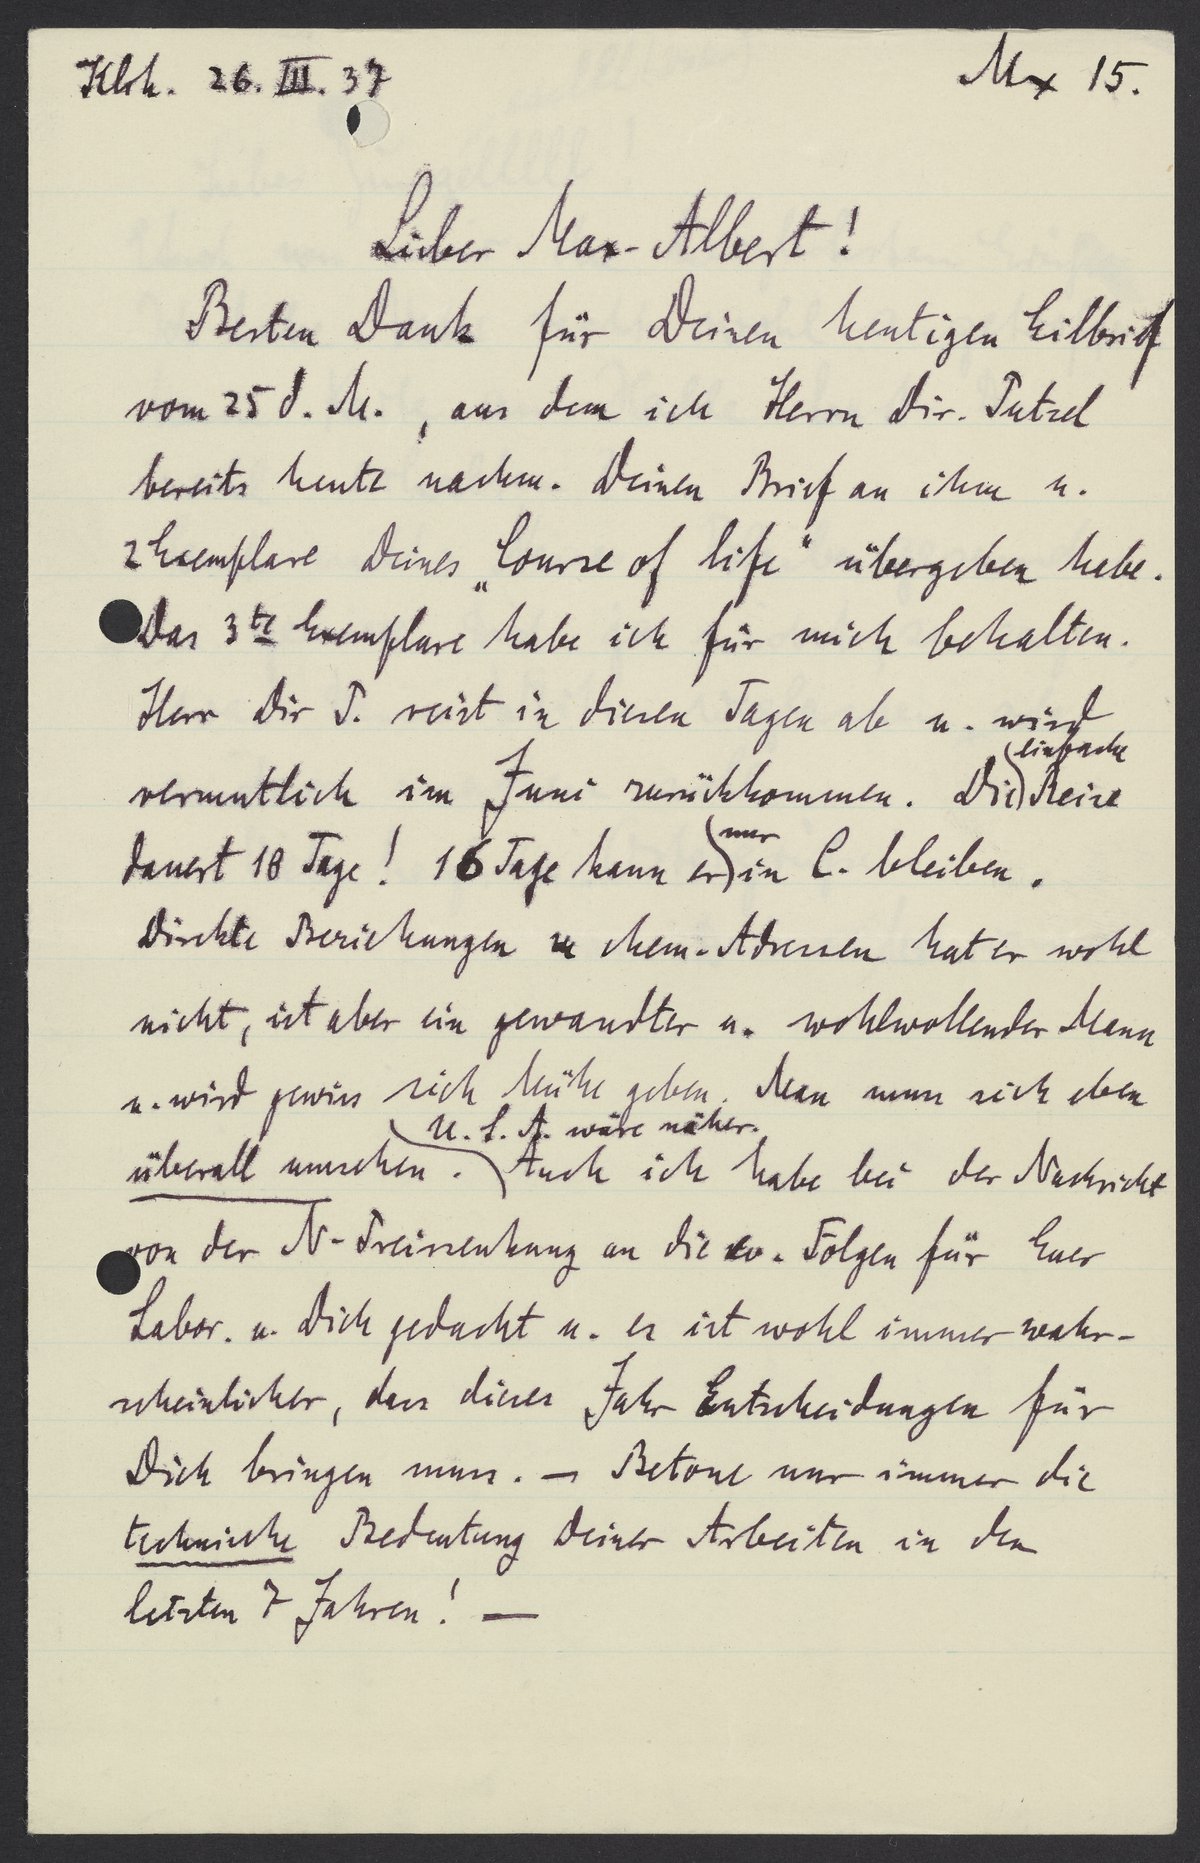 Klsh. 26. III. 37
Mx 15.
Lieber Max-Albert!
Besten Dank für Deinen heutigen Eilbrief
vom 25 d. M., aus dem ich Herrn Dir. Putzel
bereits heute nachm. Deinen Brief an ihm u.
2 Exemplare Deines „Course of life“ übergeben habe.
Das 3te Exemplare habe ich für mich behalten.
Herr Dir P. reist in diesen Tagen ab u. wird
vermutlich im Juni zurückkommen. Die einfache Reise
dauert 18 Tage! 16 Tage kann er nur in C. bleiben.
Direkte Beziehungen zu chem. Adressen hat er wohl
nicht, ist aber ein gewandter u. wohlwollender Mann
u. wird gewiss sich Mühe geben. Man muss sich eben
überall umsehen. U. S. A. wäre näher. Auch ich habe bei der Nachricht
von der N-Preissenkung an die ev. Folgen für Euer
Labor. u. Dich gedacht u. es ist wohl immer wahr-
scheinlicher, dass dieses Jahr Entscheidungen für
Dich bringen muss. — Betone nur immer die
technische Bedeutung Deiner Arbeiten in den
letzten 7 Jahren! —